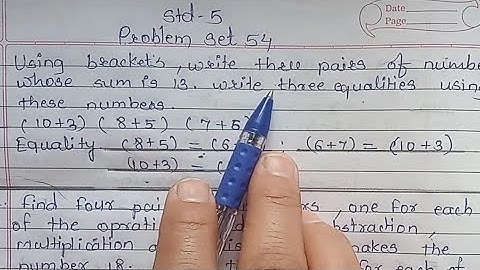 Date
Page
Std-5
Problem Set 54
Using brackets, write three pairs of number
whose sum is 13. write three equalities using
these numbers.
(10+3) (8+5) (7+6
Equality (8+5) = (6 ; (6+7) = (10+3)
(10+3) = (
Find four pai rs, one for each
of the operati btraction,
multiplication a is makes the
number 18. for each of